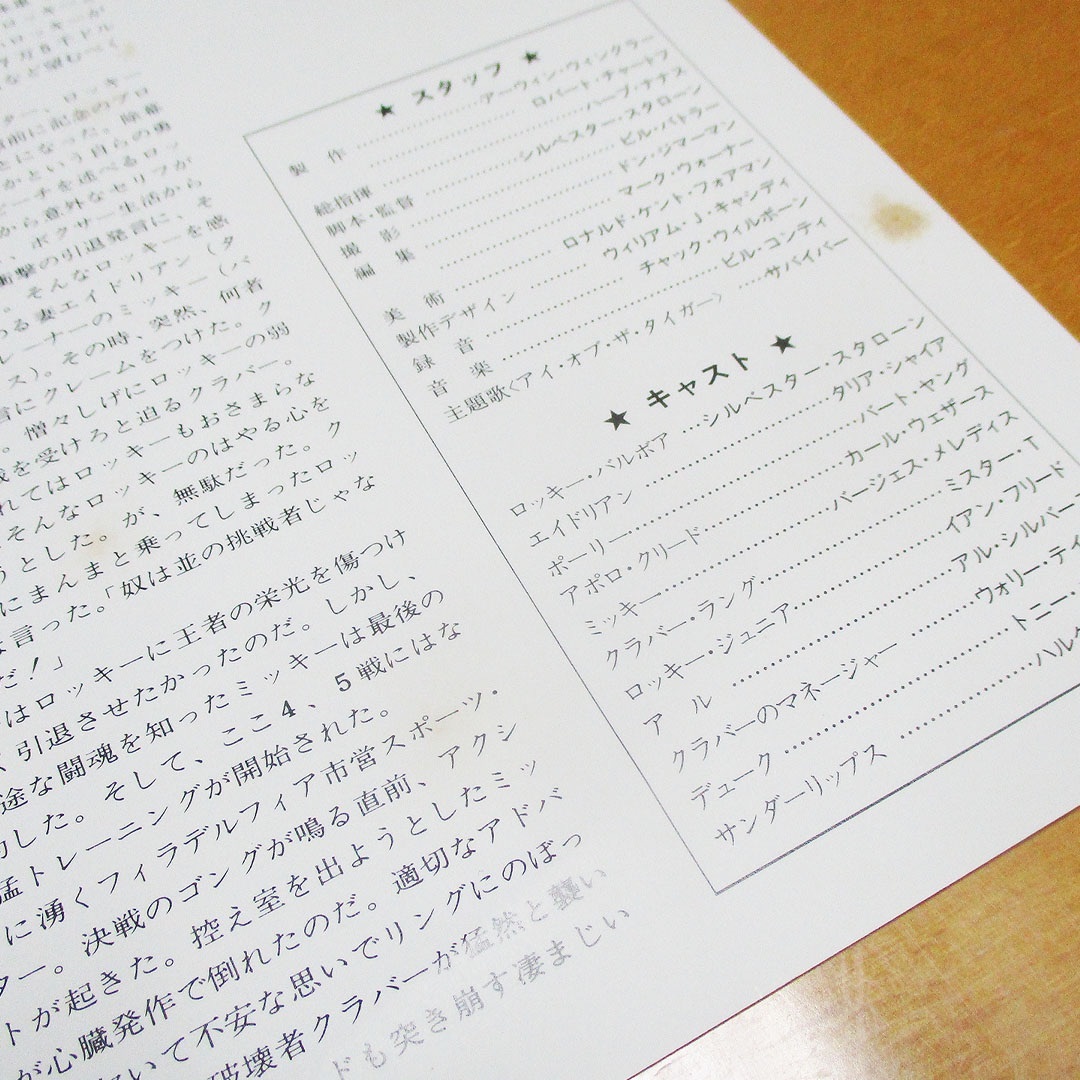 ター、ロッキー
前に記念のプロ
とになった。除幕
かという自らの勇
ーチを述べるロッ
から意外なセリフが
ボクサー生活から
衝撃の引退発言に、そ
。そんなロッキーを感
わる妻エイドリアン（タ
レーナーのミッキー（バ
ス）。その時、突然、何者
言にクレームをつけた。ク
。憎々しげにロッキーの弱
戦を受けろと迫るクラバー。
れてはロッキーもおさまらな
そんなロッキーのはやる心を
うとした。が、無駄だった。ク
にまんまと乗ってしまったロッ
は言った。「奴は並の挑戦者じゃな
だ！」
はロッキーに王者の栄光を傷つけ
く引退させたかったのだ。しかし、
途な闘魂を知ったミッキーは最後の
した。そして、ここ4、5戦にはな
猛トレーニングが開始された。
に湧くフィラデルフィア市営スポーツ・
ター。決戦のゴングが鳴る直前、アクシ
トが起きた。控え室を出ようとしたミッ
が心臓発作で倒れたのだ。適切なアドバ
いて不安な思いでリングにのぼっ
破壊者クラバーが猛然と襲い
ドも突き崩す凄まじい
★ スタッフ ★
製作……アーウィン・ウィンクラー
……ロバート・チャートフ
総指揮……ハーブ・ナナス
脚本・監督……シルベスター・スタローン
撮影……ビル・バトラー
編集……ドン・ジマーマン
マーク・ワォーナー
美術……ロナルド・ケント・フォアマン
製作デザイン……ウィリアム・J・キャシディ
録音……チャック・ウィルボーン
音楽……ビル・コンティ
主題歌〈アイ・オブ・ザ・タイガー〉…サバイバー
★ キャスト ★
ロッキー・バルボア…シルベスター・スタローン
エイドリアン……タリア・シャイア
ポーリー……バート・ヤング
アポロ・クリード……カール・ウェザース
ミッキー……バージェス・メレディス
クラバー・ラング……ミスター・T
ロッキー・ジュニア……イアン・フリード
アル……アル・シルバー
クラバーのマネージャー……ウォリー・
デューク……トニー・
サンダーリップス……ハル